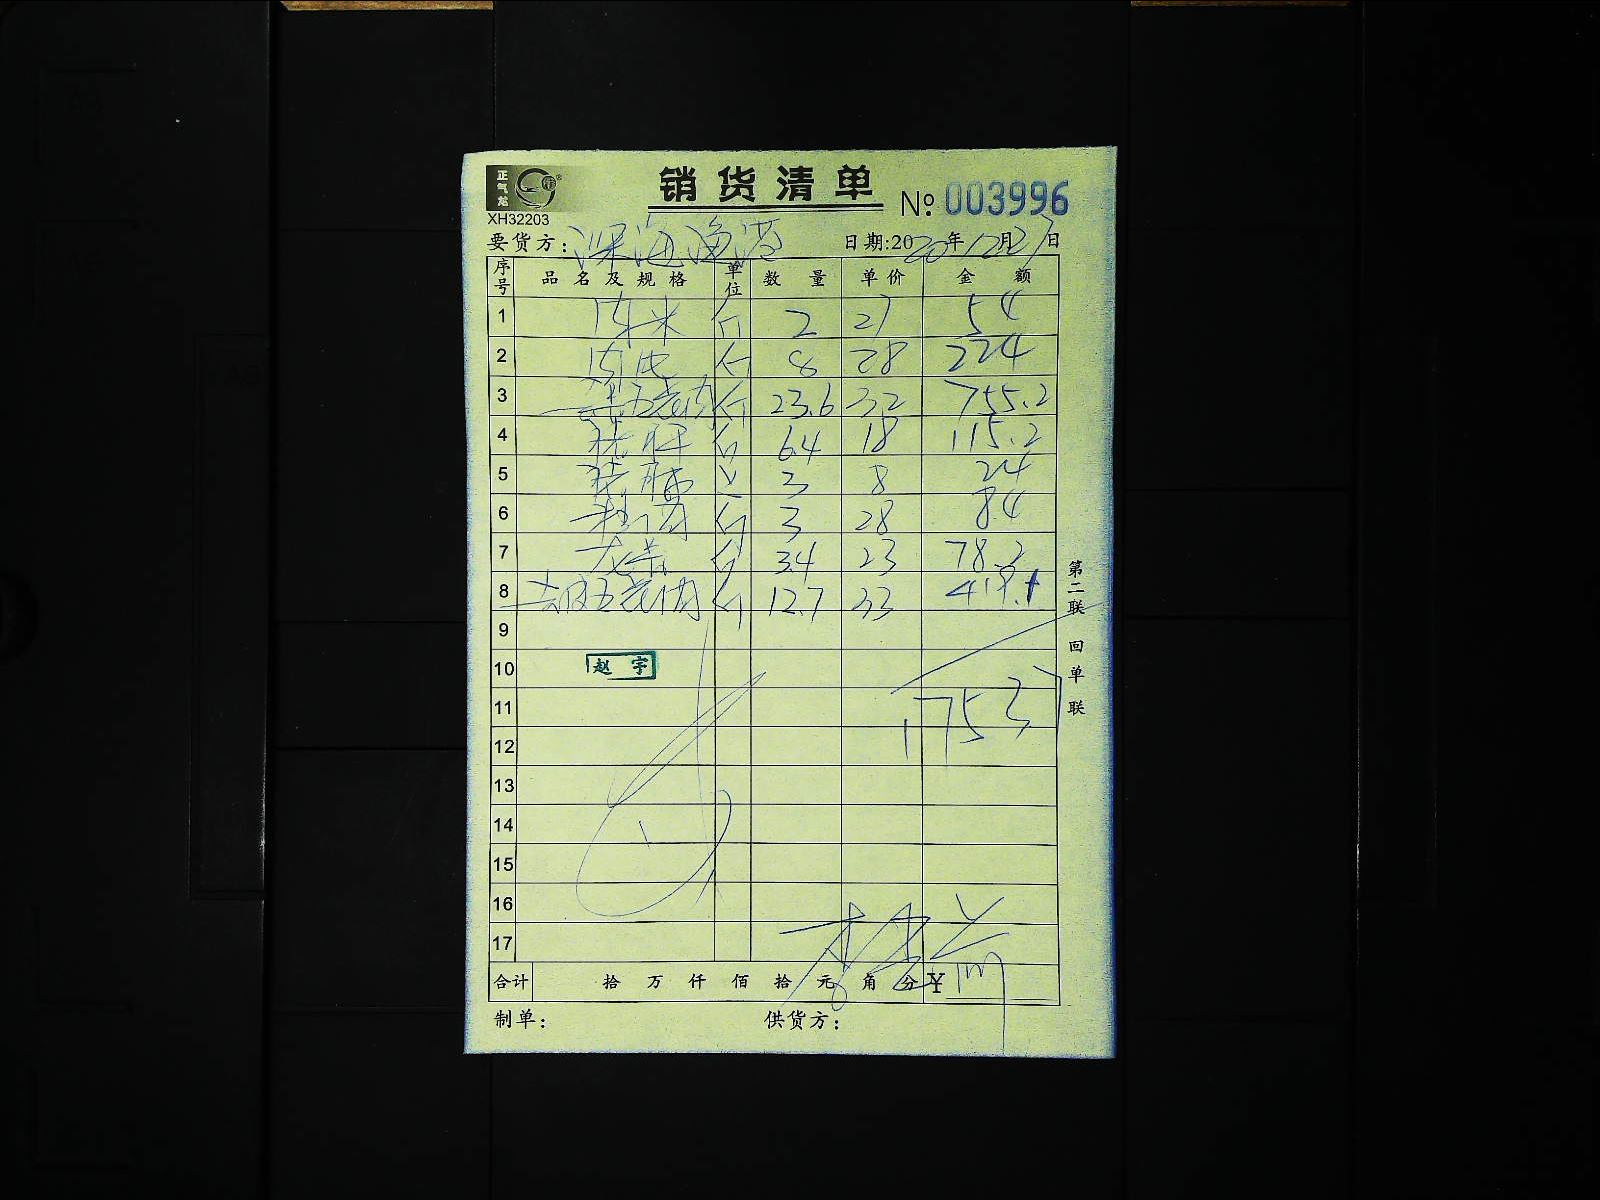 正气龙
销货清单
№ 003996
XH32203
要货方: 深海渔港 日期:2020年12月27日
序号 品名及规格 单位 数量 单价 金额
1 肉米 斤 2 27 54
2 斤 8 28 224
3 五花肉 斤 23.6 32 755.2
4 斤 6.4 18 115.2
5 3 8 24
6 斤 3 28 84
7 龙骨 斤 3.4 23 78.2
8 去皮五花肉 斤 12.7 33 419.1
9
10 赵宇
11 1753.7
12
13
14
15
16
17
合计 拾 万 仟 佰 拾 元 角 分 ¥
制单: 供货方:
第二联 回单联